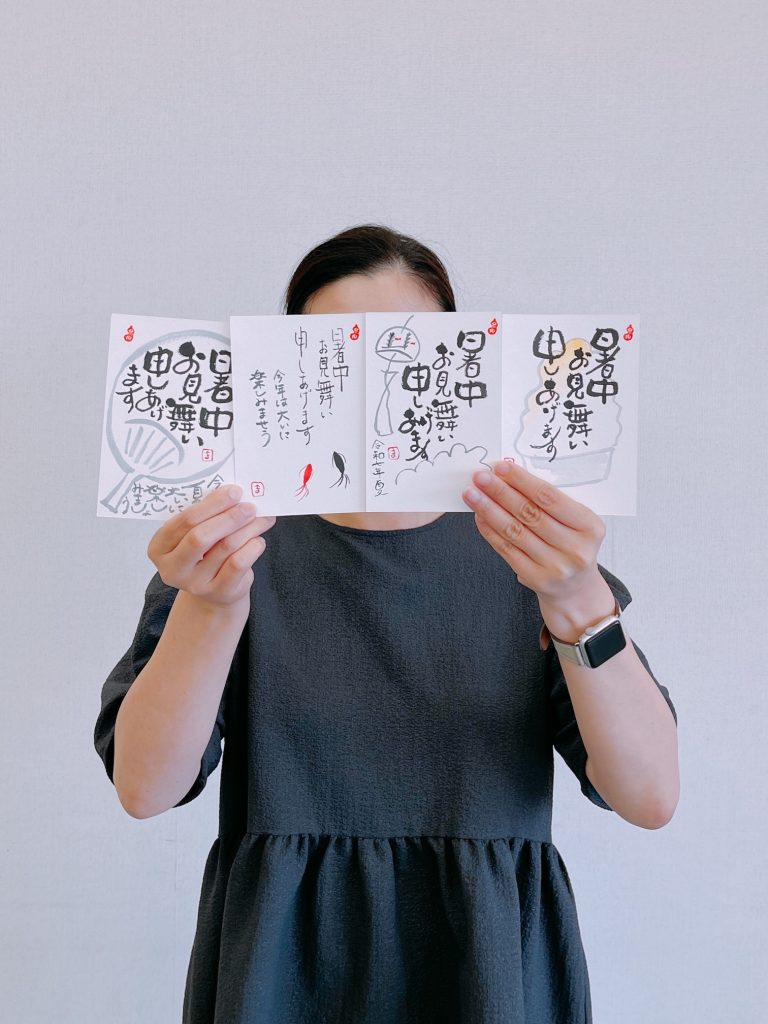 暑中
お見舞い
申しあげ
ます
今
夏
大いに
楽し
みましょ
う
暑中
お見舞い
申しあげます
今年は大いに
楽しみませう
ま
暑中
お見舞い
申しあげます
令和七年夏
ま
暑中
お見舞い
申しあげます